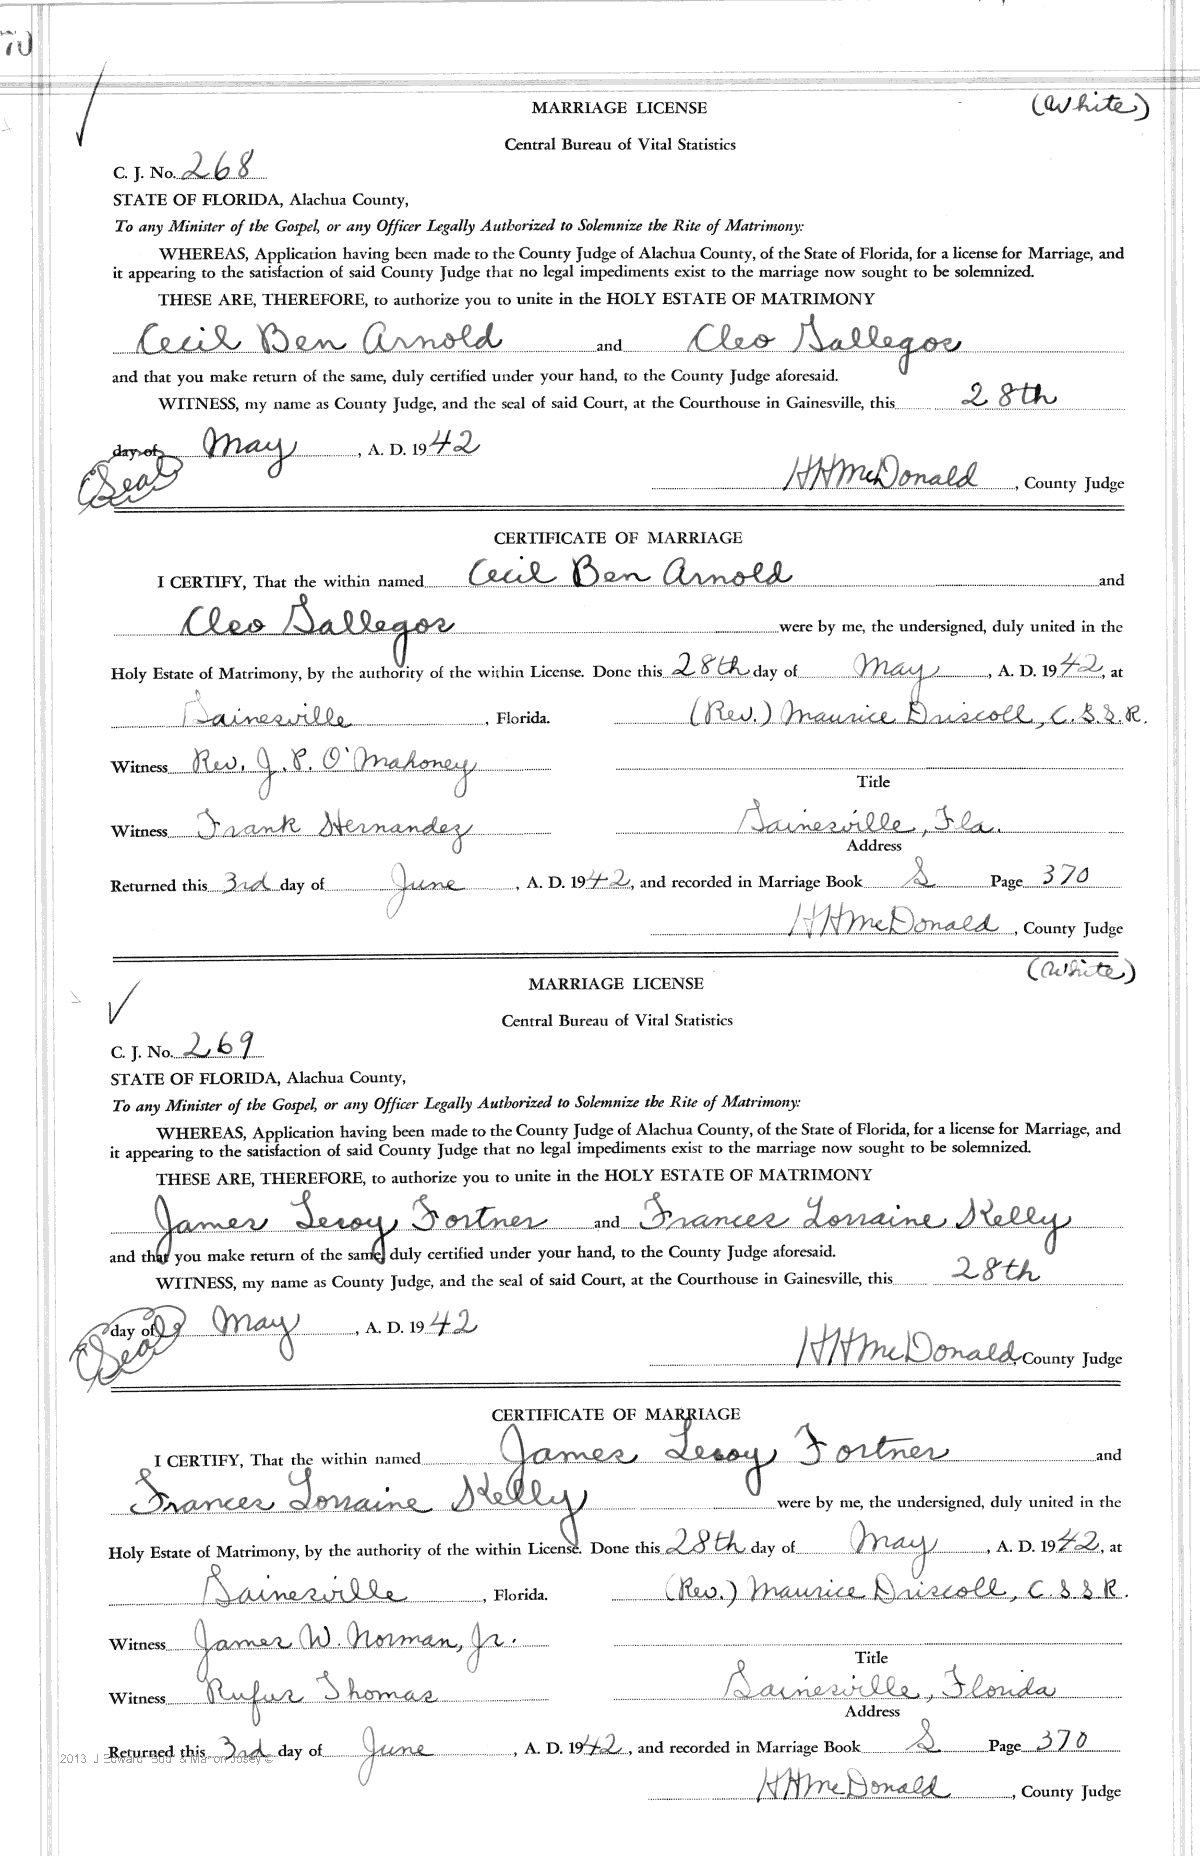 70
(White)
MARRIAGE LICENSE
Central Bureau of Vital Statistics
C. J. No. 268
STATE OF FLORIDA, Alachua County,
To any Minister of the Gospel, or any Officer Legally Authorized to Solemnize the Rite of Matrimony:
WHEREAS, Application having been made to the County Judge of Alachua County, of the State of Florida, for a license for Marriage, and
it appearing to the satisfaction of said County Judge that no legal impediments exist to the marriage now sought to be solemnized.
THESE ARE, THEREFORE, to authorize you to unite in the HOLY ESTATE OF MATRIMONY
Cecil Ben Arnold and Cleo Gallegos
and that you make return of the same, duly certified under your hand, to the County Judge aforesaid.
WITNESS, my name as County Judge, and the seal of said Court, at the Courthouse in Gainesville, this 28th
day of May, A. D. 1942
(Seal) HHMcDonald, County Judge
CERTIFICATE OF MARRIAGE
I CERTIFY, That the within named Cecil Ben Arnold and
Cleo Gallegos were by me, the undersigned, duly united in the
Holy Estate of Matrimony, by the authority of the within License. Done this 28th day of May, A. D. 1942, at
Gainesville, Florida. (Rev.) Maurice Driscoll, C.S.S.R.
Witness Rev. J. P. O'Mahoney
Title
Witness Frank Hernandez Gainesville, Fla.
Address
Returned this 3rd day of June, A. D. 1942, and recorded in Marriage Book S Page 370
HHMcDonald, County Judge
(White)
MARRIAGE LICENSE
Central Bureau of Vital Statistics
C. J. No. 269
STATE OF FLORIDA, Alachua County,
To any Minister of the Gospel, or any Officer Legally Authorized to Solemnize the Rite of Matrimony:
WHEREAS, Application having been made to the County Judge of Alachua County, of the State of Florida, for a license for Marriage, and
it appearing to the satisfaction of said County Judge that no legal impediments exist to the marriage now sought to be solemnized.
THESE ARE, THEREFORE, to authorize you to unite in the HOLY ESTATE OF MATRIMONY
James Leroy Fortner and Frances Lorraine Kelly
and that you make return of the same, duly certified under your hand, to the County Judge aforesaid.
WITNESS, my name as County Judge, and the seal of said Court, at the Courthouse in Gainesville, this 28th
day of May, A. D. 1942
(Seal) HHMcDonald, County Judge
CERTIFICATE OF MARRIAGE
I CERTIFY, That the within named James Leroy Fortner and
Frances Lorraine Kelly were by me, the undersigned, duly united in the
Holy Estate of Matrimony, by the authority of the within License. Done this 28th day of May, A. D. 1942, at
Gainesville, Florida. (Rev.) Maurice Driscoll, C.S.S.R.
Witness James W. Norman, Jr.
Title
Witness Rufus Thomas Gainesville, Florida
Address
Returned this 3rd day of June, A. D. 1942, and recorded in Marriage Book S Page 370
HHMcDonald, County Judge